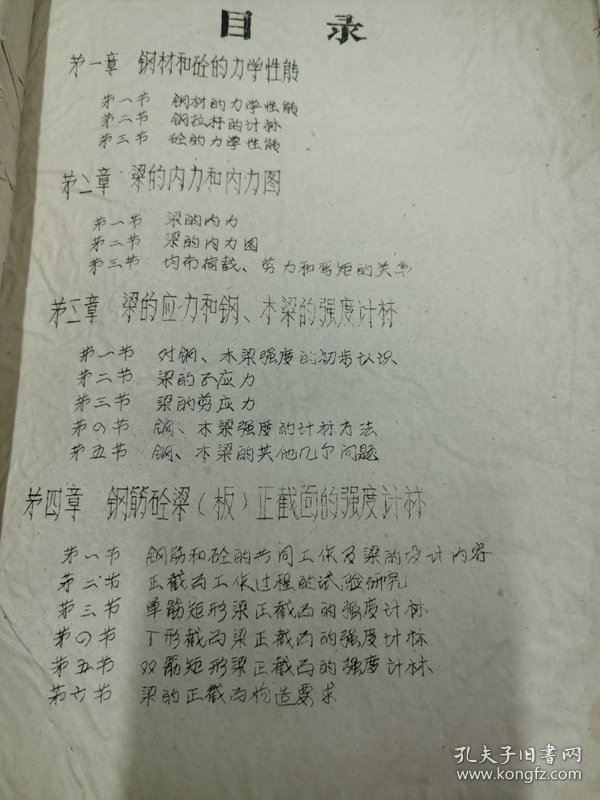 目 录
第一章 钢材和砼的力学性能
第一节 钢材的力学性能
第二节 钢拉杆的计标
第三节 砼的力学性能
第二章 梁的内力和内力图
第一节 梁的内力
第二节 梁的内力图
第三节 均布荷载、剪力和弯矩的关系
第三章 梁的应力和钢、木梁的强度计标
第一节 对钢、木梁强度的初步认识
第二节 梁的正应力
第三节 梁的剪应力
第四节 钢、木梁强度的计标方法
第五节 钢、木梁的其他几个问题
第四章 钢筋砼梁(板)正截面的强度计标
第一节 钢筋和砼的共同工作及梁的设计内容
第二节 正截面工作过程的试验研究
第三节 单筋矩形梁正截面的强度计标
第四节 丁形截面梁正截面的强度计标
第五节 双筋矩形梁正截面的强度计标
第六节 梁的正截面构造要求
孔夫子旧书网
www.kongfz.com